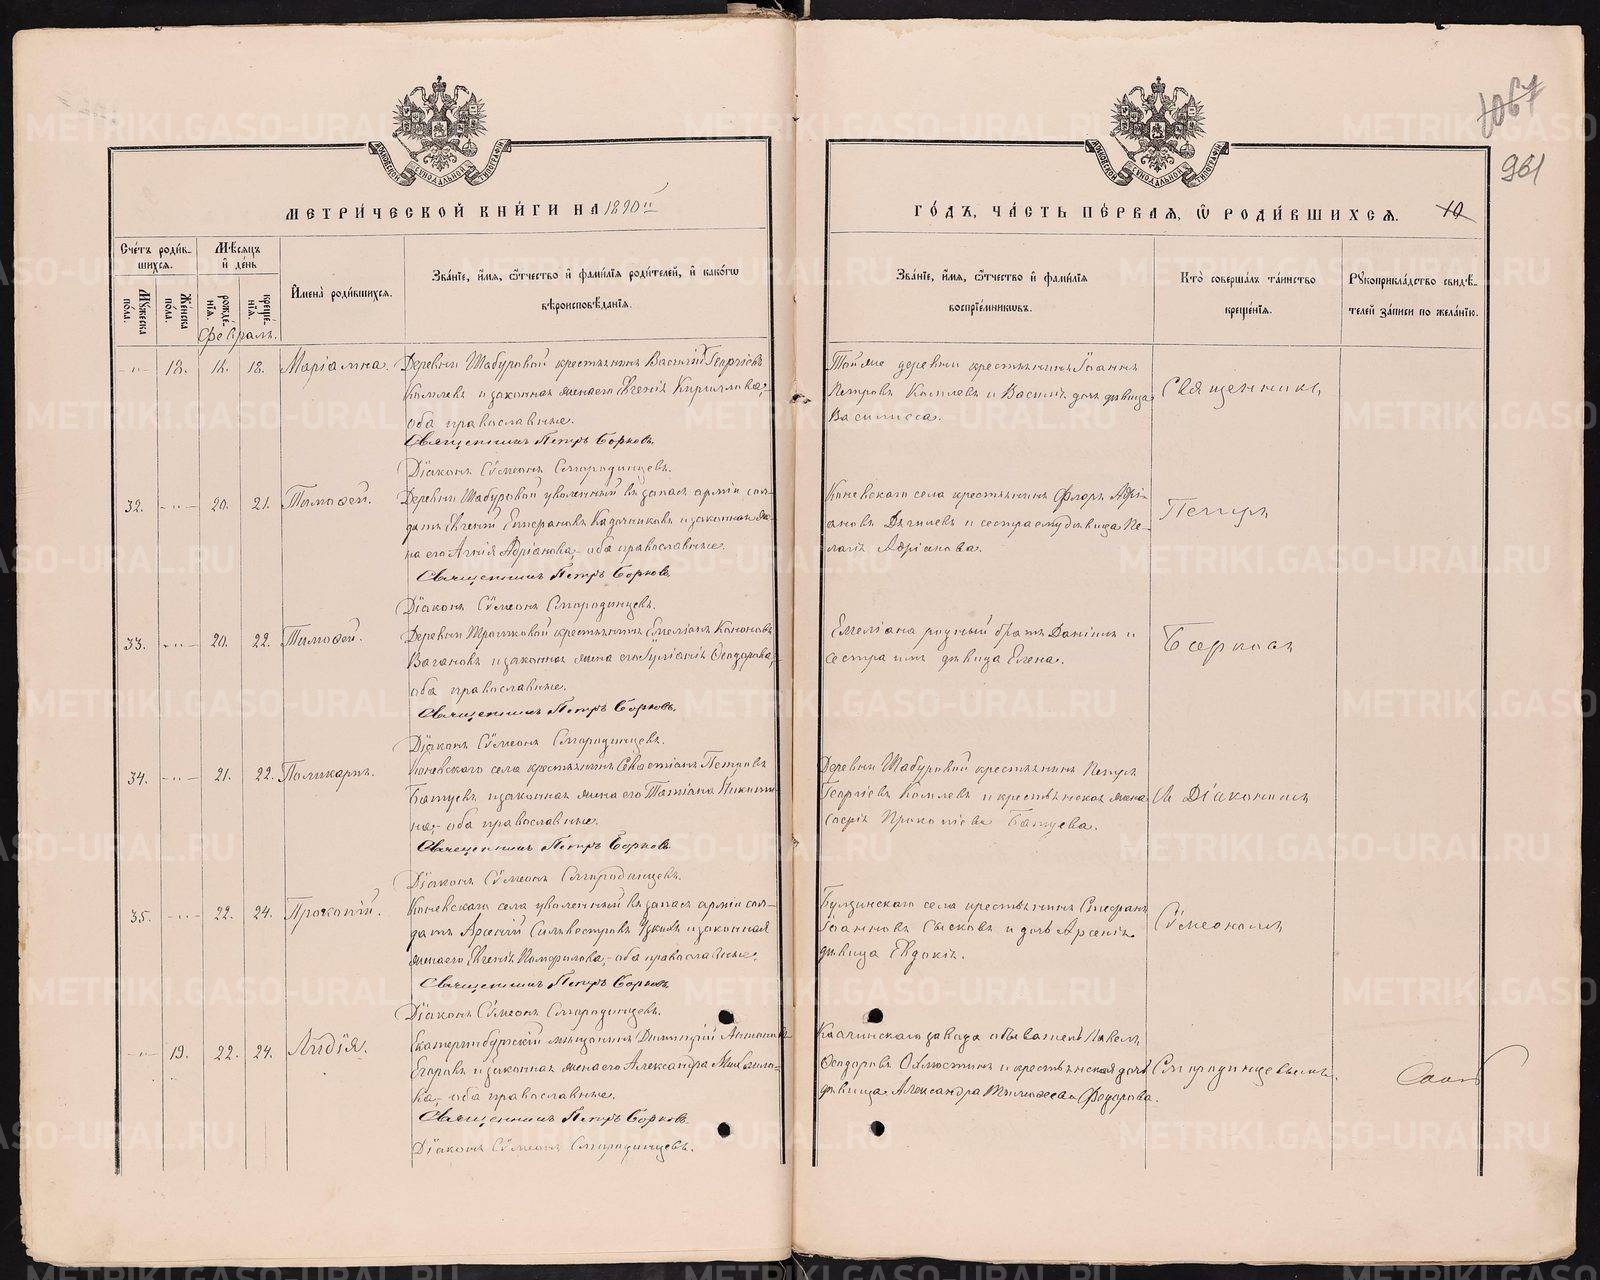 1067
961
МЕТРИ́ЧЕСКОЙ КНИ́ГИ НА 1890
ГО́ДЪ, ЧА́СТЬ ПЕ́РВАЯ, Ѿ РОДИ́ВШИХСЯ. 10
Сче́тъ роди́вшихся.
Мужеска пола.
Женска пола.
Мѣсяцъ и де́нь
рожде́нія.
креще́нія.
Имена̀ роди́вшихся.
Зва́нїе, и́мя, ѻ҆́тчество и҆ фами́лїя роди́телей, и҆ како́гѡ
вѣроисповѣ́данїя.
Зва́нїе, и́мя, ѻ҆́тчество и҆ фами́лїя
воспрїе́мниковъ.
Кто̀ соверша́лъ та́инство
креще́нїя.
Рукоприкла́дство свидѣ́-
телей за́писи по жела́нїю.
Февраль.
-"- 18. 18. Маріамна. Деревни Шабуровой крестьянинъ Василій Георгіевъ
Комлевъ и законная жена его Евгенія Кириллова,
оба православные.
Священникъ Петръ Борковъ.
Діаконъ Сѵмеонъ Смородинцевъ.
Той же деревни крестьянинъ Іоаннъ
Петровъ Комлевъ и Василія дочь дѣвица
Василисса.
Священникъ
32. -"- 20. 21. Тимоѳей. Деревни Шабуровой уволенный въ запасъ арміи сол-
датъ Евгеній Кадочниковъ и законная же-
на его Агнія Адріанова, оба православные.
Священникъ Петръ Борковъ
Діаконъ Сѵмеонъ Смородинцевъ.
Коневскаго села крестьянинъ Флоръ Адрі-
ановъ и сестра ему дѣвица Пе-
лагія Адріанова.
Петръ
33. -"- 20. 22. Тимоѳей. Деревни крестьянинъ Емеліанъ Кононовъ
Вагановъ и законная жена его Іуліанія Ѳеодорова,
оба православные.
Священникъ Петръ Борковъ.
Діаконъ Сѵмеонъ Смородинцевъ.
Емеліана родный братъ Даніилъ и
сестра имъ дѣвица Елена.
Борковъ
34. -"- 21. 22. Поликарпъ. Коневскаго села крестьянинъ Севастіанъ Петровъ
Батуевъ и законная жена его Татіана Никити-
на, оба православные.
Священникъ Петръ Борковъ
Діаконъ Сѵмеонъ Смородинцевъ.
Деревни Шабуровой крестьянинъ Петръ
Георгіевъ Комлевъ и крестьянская жена
Софія Прокопіева Батуева.
и Діаконъ
35. -"- 22. 24. Прокопій. Коневскаго села уволенный въ запасъ арміи сол-
датъ Арсеній Сильвестровъ и законная
жена его Евгенія, оба православные.
Священникъ Петръ Борковъ
Діаконъ Сѵмеонъ Смородинцевъ.
Булзинскаго села крестьянинъ Стефанъ
Іоанновъ Сысковъ и дочь Арсенія
дѣвица Евдокія.
Сѵмеономъ
-"- 19. 22. 24. Лидія. Екатеринбургскій мѣщанинъ Димитрій
Егоровъ и законная жена его Александра Михаило-
ва, оба православные.
Священникъ Петръ Борковъ.
Діаконъ Сѵмеонъ Смородинцевъ.
Каслинскаго завода обыватель Павелъ
Ѳеодоровъ и крестьянская дочь
дѣвица Александра Тимоѳеева Федорова.
Смородинцевымъ.